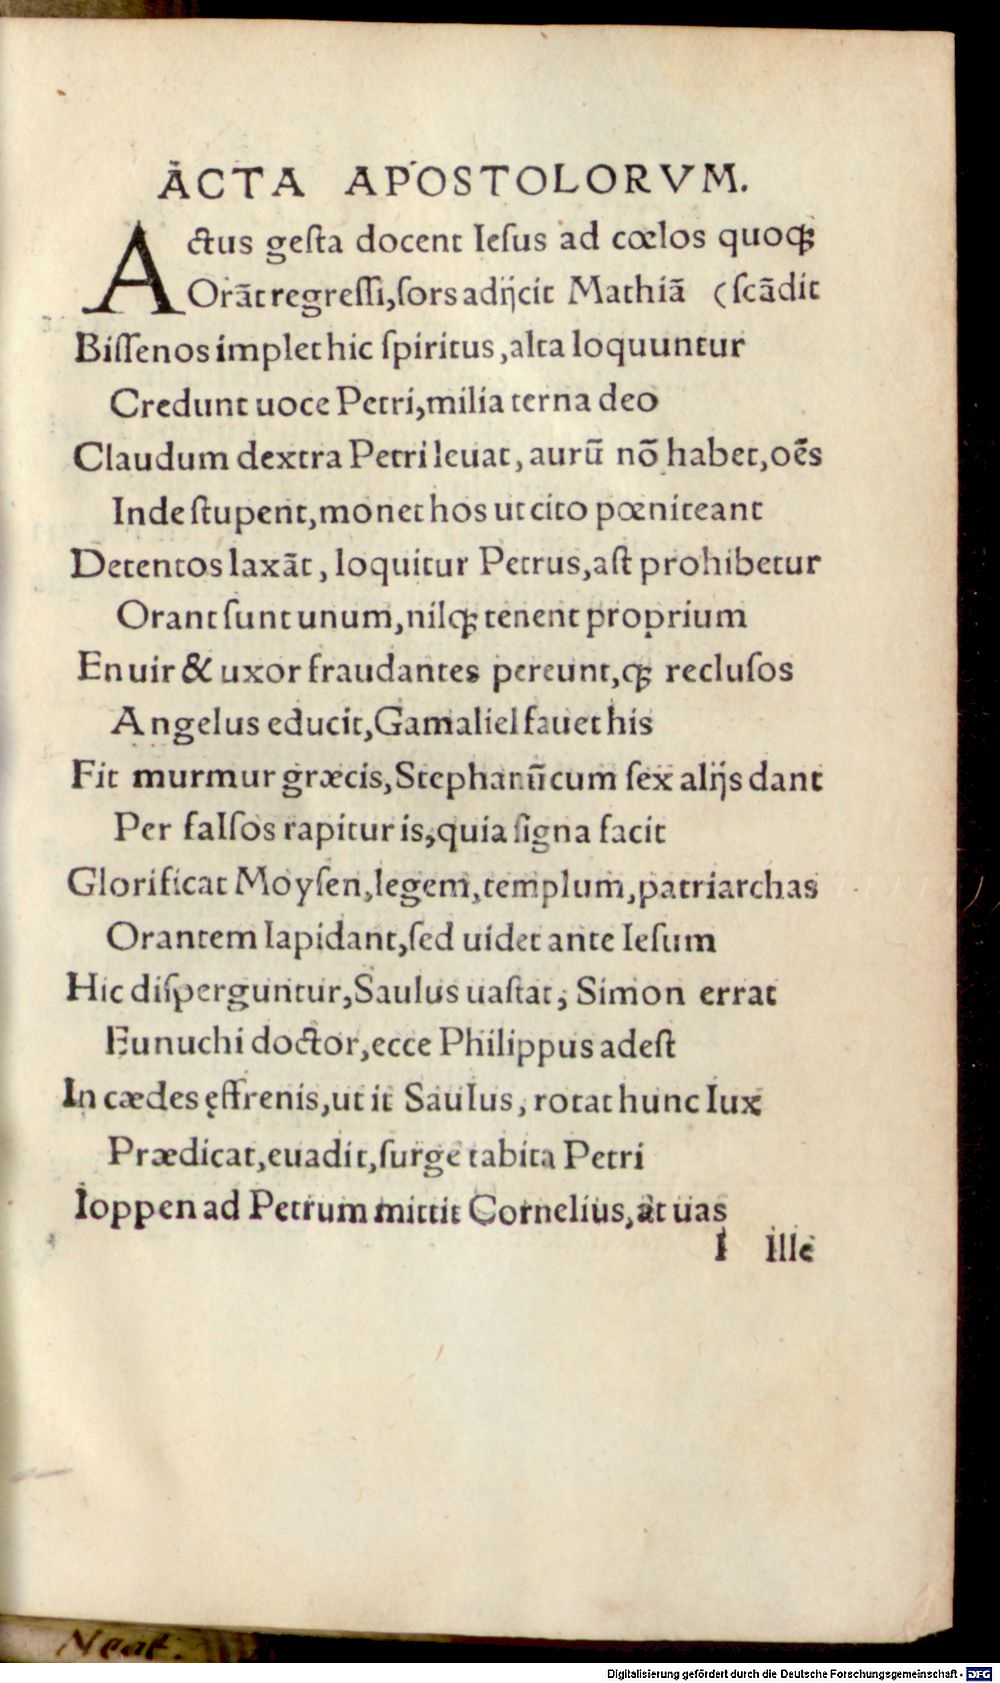 ACTA APOSTOLORVM.
Actus geſta docent Ieſus ad cœlos quoqꝫ
Orāt regreſſi, ſors adijcit Mathiā (ſcādit
Biſſenos implet hic ſpiritus, alta loquuntur
Credunt uoce Petri, milia terna deo
Claudum dextra Petri leuat, aurū nō habet, oēs
Inde ſtupent, monet hos ut cito pœniteant
Detentos laxāt, loquitur Petrus, aſt prohibetur
Orant ſunt unum, nilqꝫ tenent proprium
En uir & uxor fraudantes pereunt, qꝫ recluſos
Angelus educit, Gamaliel fauet his
Fit murmur græcis, Stephanū cum ſex alijs dant
Per falſos rapitur is, quia ſigna facit
Glorificat Moyſen, legem, templum, patriarchas
Orantem lapidant, ſed uidet ante Ieſum
Hic diſperguntur, Saulus uaſtat, Simon errat
Eunuchi doctor, ecce Philippus adeſt
In cædes ęffrenis, ut it Saulus, rotat hunc lux
Prædicat, euadit, ſurge tabita Petri
Ioppen ad Petrum mittit Cornelius, at uas
I ille
Digitalisierung gefördert durch die Deutsche Forschungsgemeinschaft - DFG